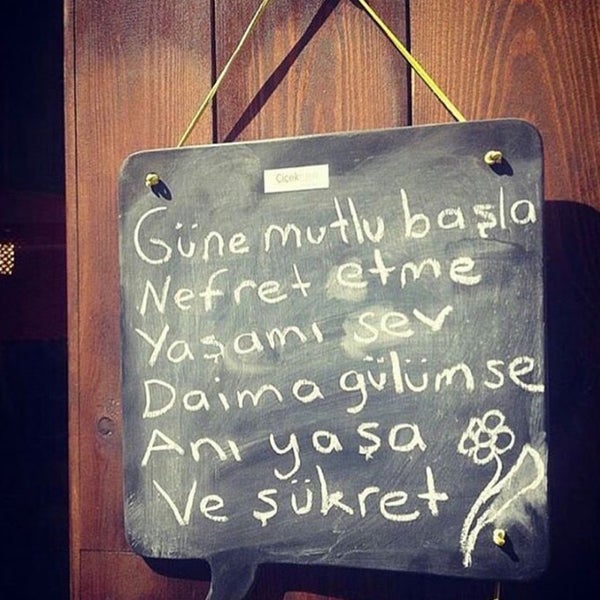 Çiçek
Güne mutlu başla
Nefret etme
Yaşamı sev
Daima gülümse
Anı yaşa
Ve şükret